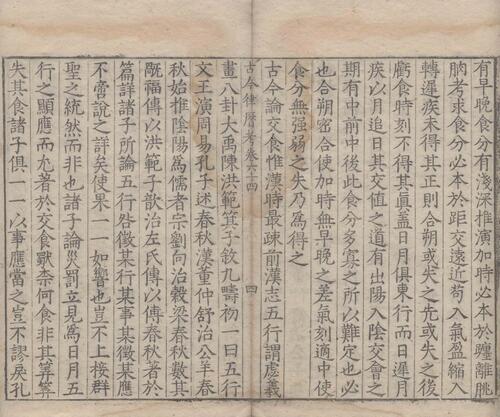 有早晚食分有淺深推演加時必本於躔離朓
朒考求食分必本於距交遠近苟入氣盈縮入
轉遲疾未得其正則合朔或失之先或失之後
虧食時刻不得其眞蓋日月俱東行而日遲月
疾以月追日其交值之道有出陽入陰交會之
期有中前中後此食分多寡之所以難定也必
也合朔密合使加時無早晚之差氣刻適中使
食分無強弱之失乃爲得之
古今論交食惟漢時最疎前漢志五行謂虙羲
古今律曆考卷六十四 四
畫八卦大禹陳洪範箕子敘九疇初一曰五行
文王演周易孔子述春秋漢董仲舒治公羊春
秋始推陰陽爲儒者宗劉向治穀梁春秋數其
旤福傳以洪範子歆治左氏傳以傳春秋著於
篇詳諸子所論五行咎徵某行某事某徵某應
不啻說之詳矣使果一一如響也豈不上接群
聖之統然而非也諸子論災罰立見爲日月五
行之顯應而尤著於交食獸柰何食非其筭筭
失其食諸子俱一一以事應當之豈不謬戾孔